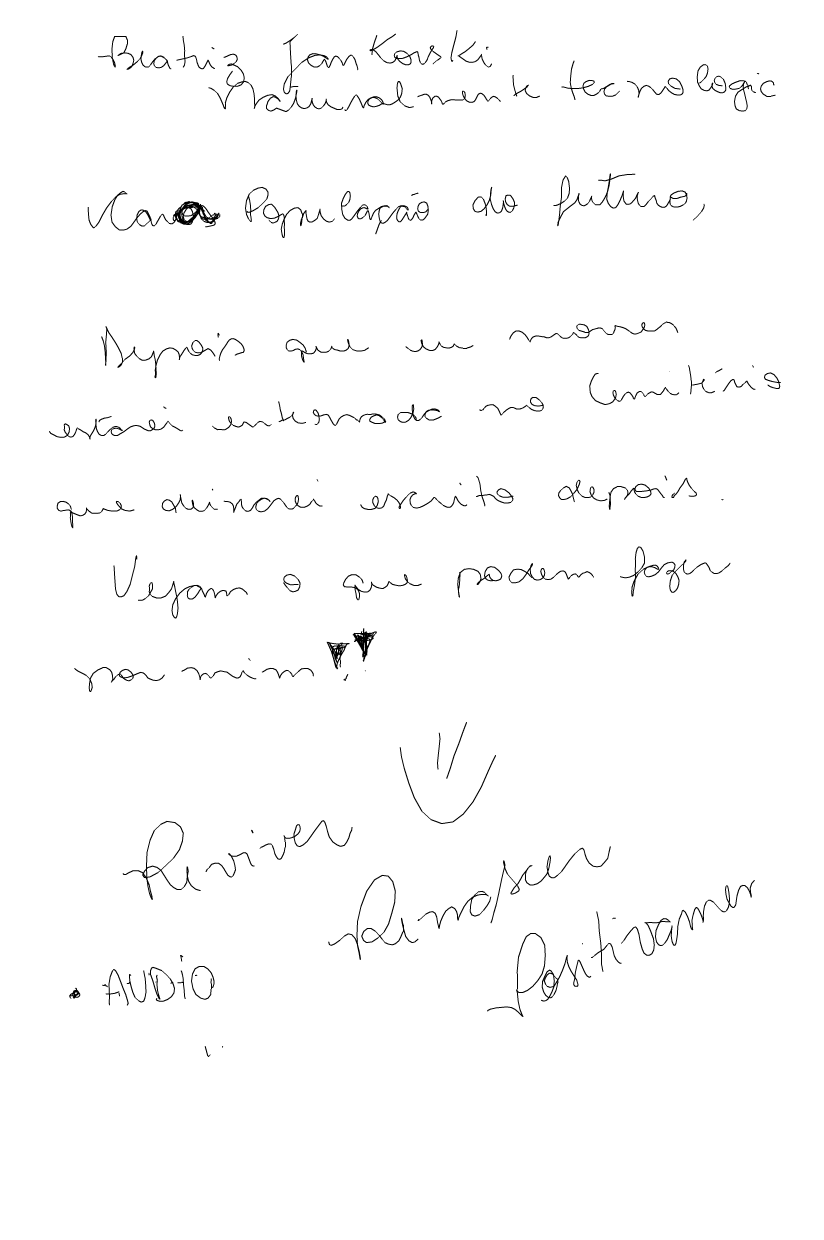 Beatriz Jankovski
Naturalmente tecnologic
Cara População do futuro,
Depois que eu morrer
estarei enterrada no Cemitério
que deixarei escrito depois.
Vejam o que podem fazer
por mim!!
Reviver
Renascer
Positivamen
• AUDIO